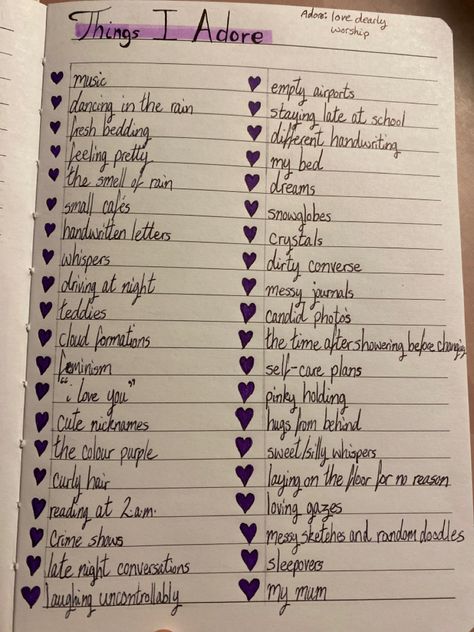 Things I Adore
Adore: love dearly
worship
music
dancing in the rain
fresh bedding
feeling pretty
the smell of rain
small cafés
handwritten letters
whispers
driving at night
teddies
cloud formations
feminism
"i love you"
cute nicknames
the colour purple
curly hair
reading at 2.a.m.
crime shows
late night conversations
laughing uncontrollably
empty airports
staying late at school
different handwriting
my bed
dreams
snowglobes
crystals
dirty converse
messy journals
candid photo's
the time after showering before changing
self-care plans
pinky holding
hugs from behind
sweet/silly whispers
laying on the floor for no reason
loving gazes
messy sketches and random doodles
sleepovers
my mum